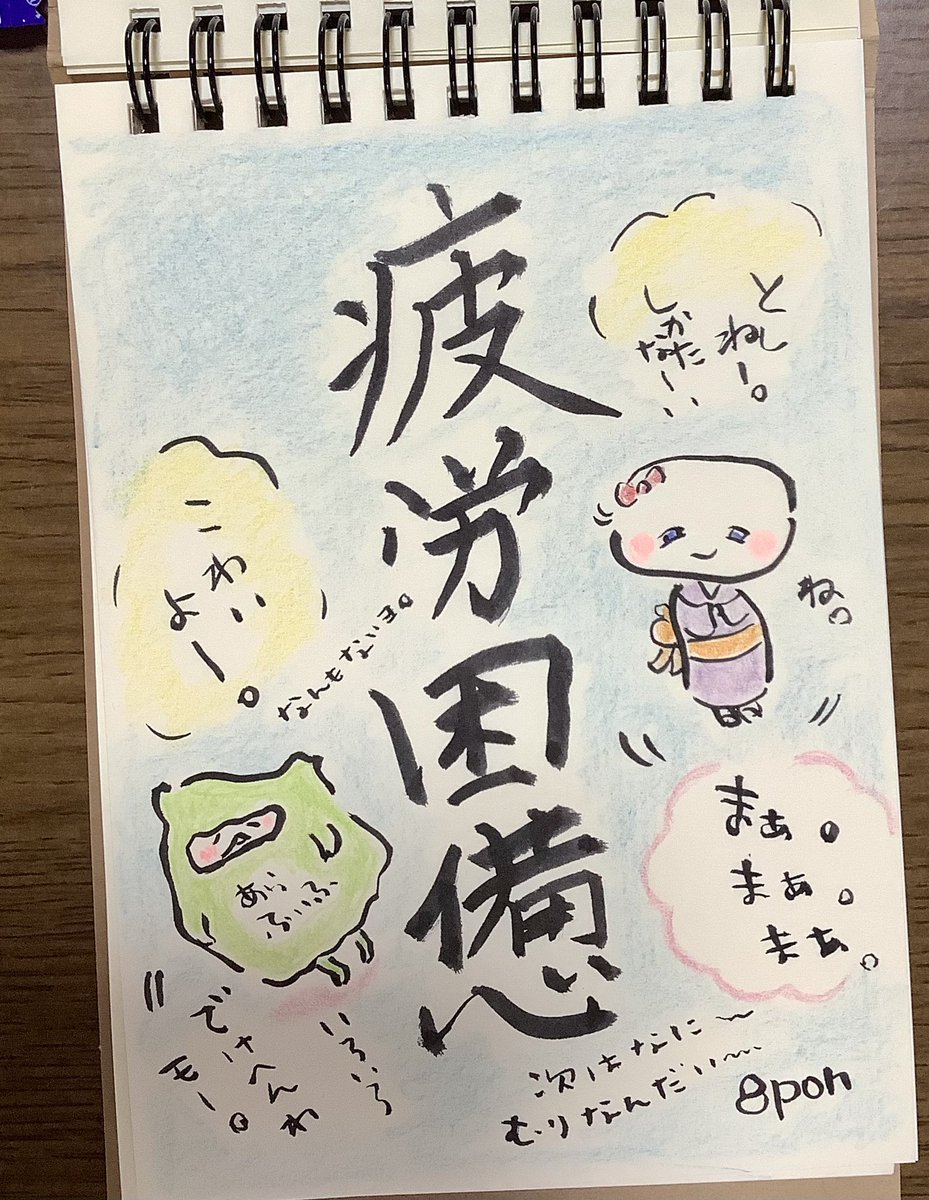 疲労困憊
とし
ねー。
しかた
なーい
こわい
よー。
なんもないヨ。
ね。
まぁ。
まぁ。
まぁ。
いろいろ
でけへんわ
モー。
次はなに〜
むりなんだい〜
8pon